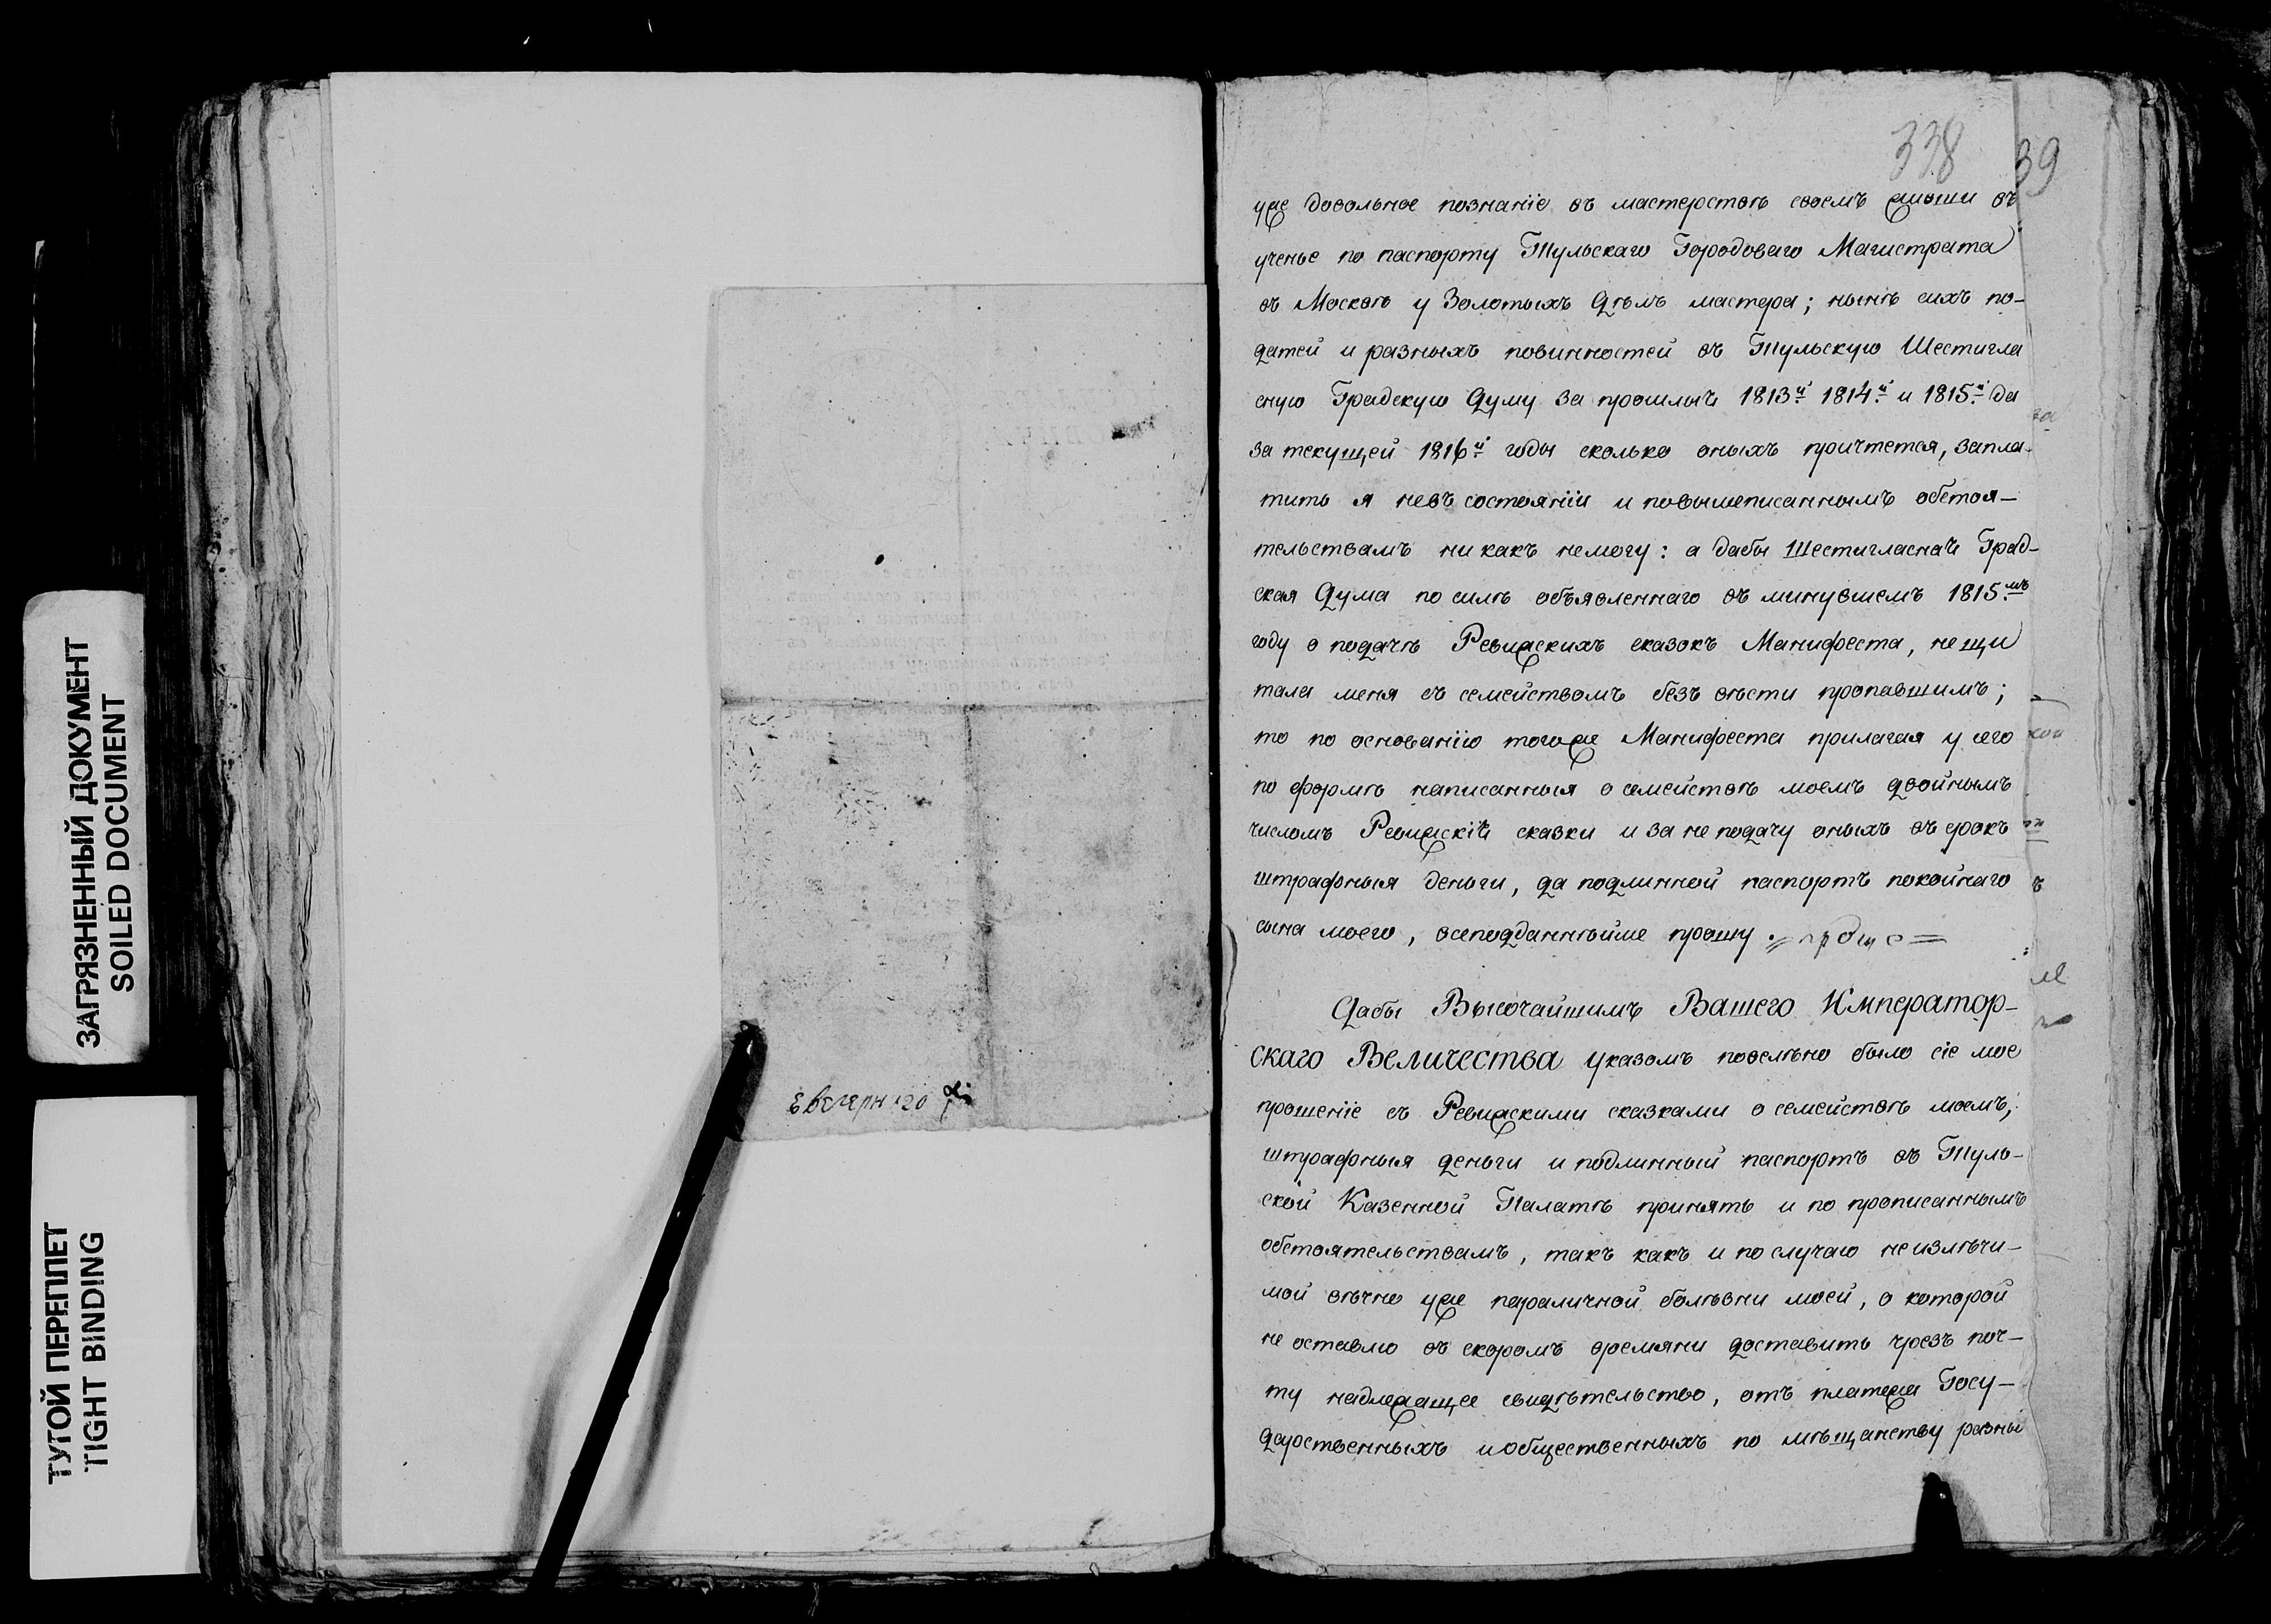 ЗАГРЯЗНЕННЫЙ ДОКУМЕНТ
SOILED DOCUMENT
ТУГОЙ ПЕРЕПЛЕТ
TIGHT BINDING
338
39
уже довольное познаніе въ мастерствѣ своемъ живши въ
ученье по паспорту Тульскаго Городоваго Магистрата
въ Москвѣ у Золотыхъ дѣлъ мастера; нынѣ сихъ по-
датей и разныхъ повинностей въ Тульскую Шестигла
сную Градскую Думу за прошлыѣ 1813й 1814й и 1815й да
за текущей 1816й годы сколько оныхъ причтется, запла-
тить я невъ состояніи и повышеписаннымъ обстоя-
тельствамъ ни какъ немогу: а дабы Шестигласнаѣ Град-
ская Дума по силѣ объявленнаго въ минувшемъ 1815мъ
году о подачѣ Ревижскихъ сказокъ Манифеста, не щи
тала меня съ семействомъ безъ вѣсти пропавшимъ;
то по основанію тогоже Манифеста прилагая у сего
по формѣ написанныя о семействѣ моемъ двойнымъ
числомъ Ревижскіѣ сказки и за не подачу оныхъ въ срокъ
штрафныя деньги, да подлинной паспортъ покойнаго
сына моего, всеподданнѣйше прошу
Дабы Высочайшимъ Вашего Император-
скаго Величества указомъ повелѣно было сіе мое
прошеніе съ Ревижскими сказками о семействѣ моемъ,
штрафныя деньги и подлинный паспортъ въ Туль-
ской Казенной Палатѣ принять и по прописаннымъ
обстоятельствамъ, такъ какъ и по случаю неизлѣчи-
мой вѣчно уже параличной болѣзни моей, о которой
не оставлю въ скоромъ времяни доставить чрезъ поч-
ту надлежащее свидѣтельство, отъ платежа Госу-
дарственныхъ и общественныхъ по мѣщанству разны